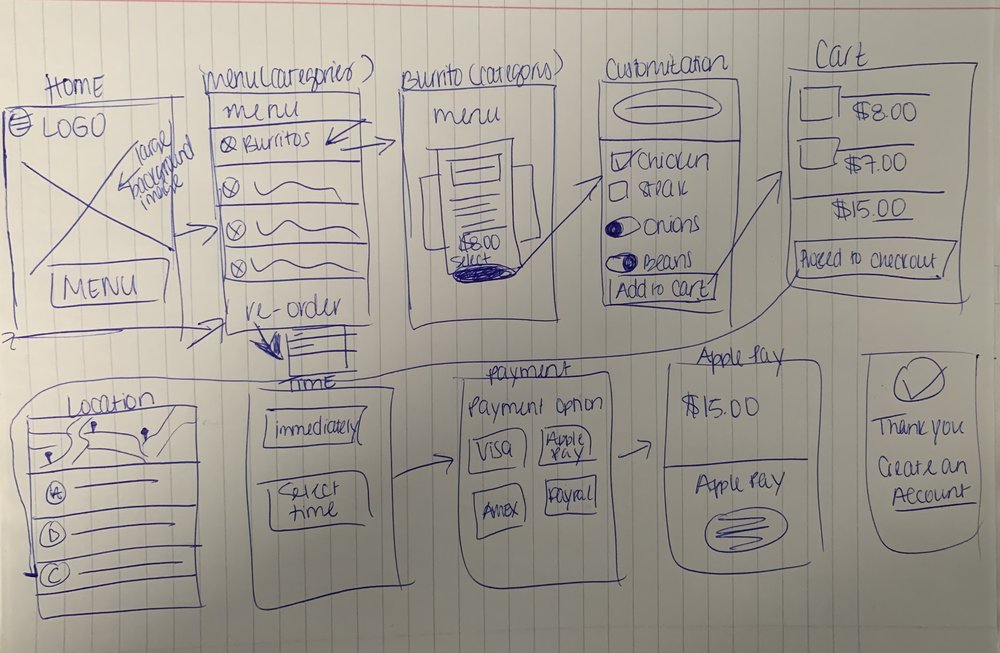 HOME
LOGO
large
background
image
MENU
menu(categories)
menu
Burritos
re-order
Burrito(category)
menu
$8.00
Select
Customization
Chicken
Steak
Onions
Beans
Add to cart
Cart
$8.00
$7.00
$15.00
Proceed to checkout
Location
A
D
C
TIME
immediately
Select
time
payment
payment option
Visa
Apple
pay
Amex
Paypal
Apple Pay
$15.00
Apple Pay
Thank you
Create an
Account